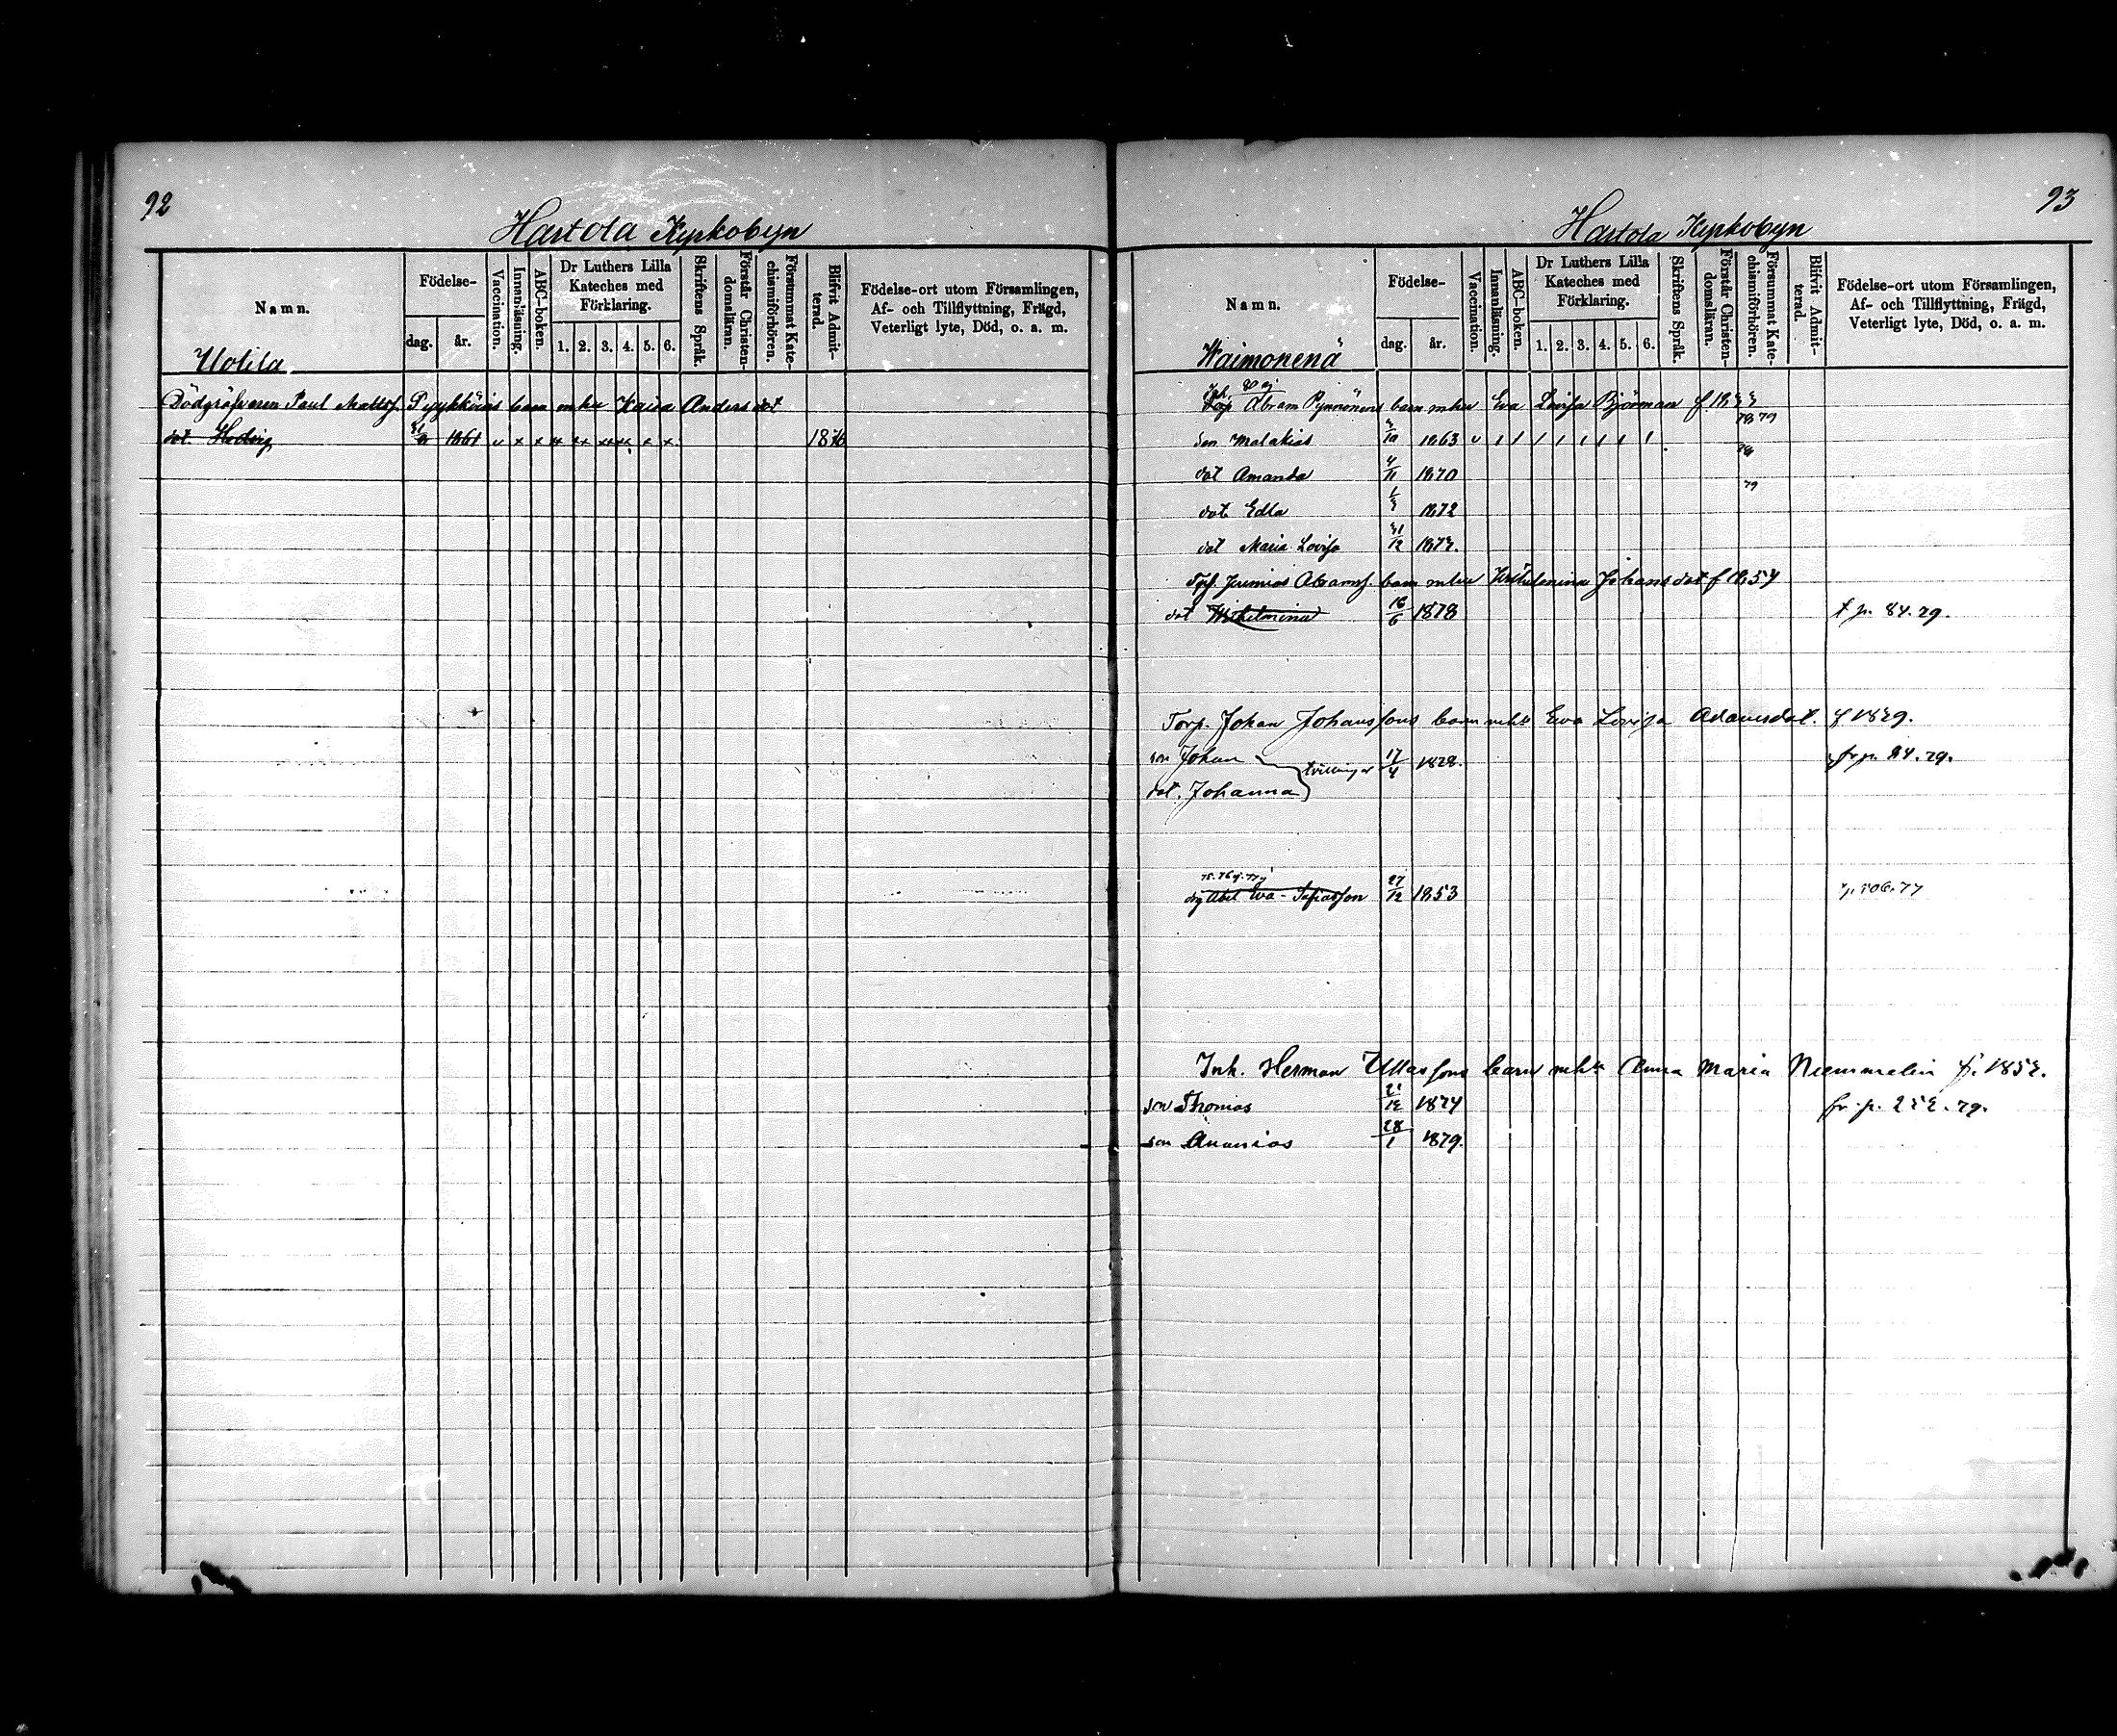 92
Hartola Kyrkobyn
Namn.
Födelse-
dag.
år.
Vaccination.
Innanläsning.
ABC-boken.
Dr Luthers Lilla
Kateches med
Förklaring.
1. 2. 3. 4. 5. 6.
Skriftens Språk.
Förstår Christen-
domsläran.
Försummat Kate-
chismiförhören.
Blifvit Admit-
terad.
Födelse-ort utom Församlingen,
Af- och Tillflyttning, Frägd,
Veterligt lyte, Död, o. a. m.
Uotila
Dödgräfvaren Paul Matts. Pyykköins barn mhu Kaisa Andersdot
dot Hedvig 1861 v x x x xx xx xx x x 1876
93
Hartola Kyrkobyn
Namn.
Födelse-
dag.
år.
Vaccination.
Innanläsning.
ABC-boken.
Dr Luthers Lilla
Kateches med
Förklaring.
1. 2. 3. 4. 5. 6.
Skriftens Språk.
Förstår Christen-
domsläran.
Försummat Kate-
chismiförhören.
Blifvit Admit-
terad.
Födelse-ort utom Församlingen,
Af- och Tillflyttning, Frägd,
Veterligt lyte, Död, o. a. m.
Waimonenä
Inh.
Torp Abram Pynnönens barn mhu Eva Lovisa Björman f. 1833
78 79
son Malakias 3/10 1863 v 1 1 1 1 1 1 1 1
dot Amanda 4/11 1870
79
dot Edla 1/3 1872
dot Maria Lovisa 31/12 1873.
Torp. Jeremias Abramss. barn mhu Wilhelmina Johansdot f 1854
dot Wilhelmina 16/6 1878 t p. 84.79.
Torp. Johan Johanssons barn mhu Eva Lovisa Adamsdot. f 1829.
son Johan tvillingar 17/4 1878. fr p. 84.79.
dot. Johanna
drg Abel Eva-Josiasson 27/12 1853
Inh. Herman Ullassons barn mhu Anna Maria Niemmelin f. 1853.
son Thomas 1874 fr. p. 253.79.
son Ananias 28/1 1879.